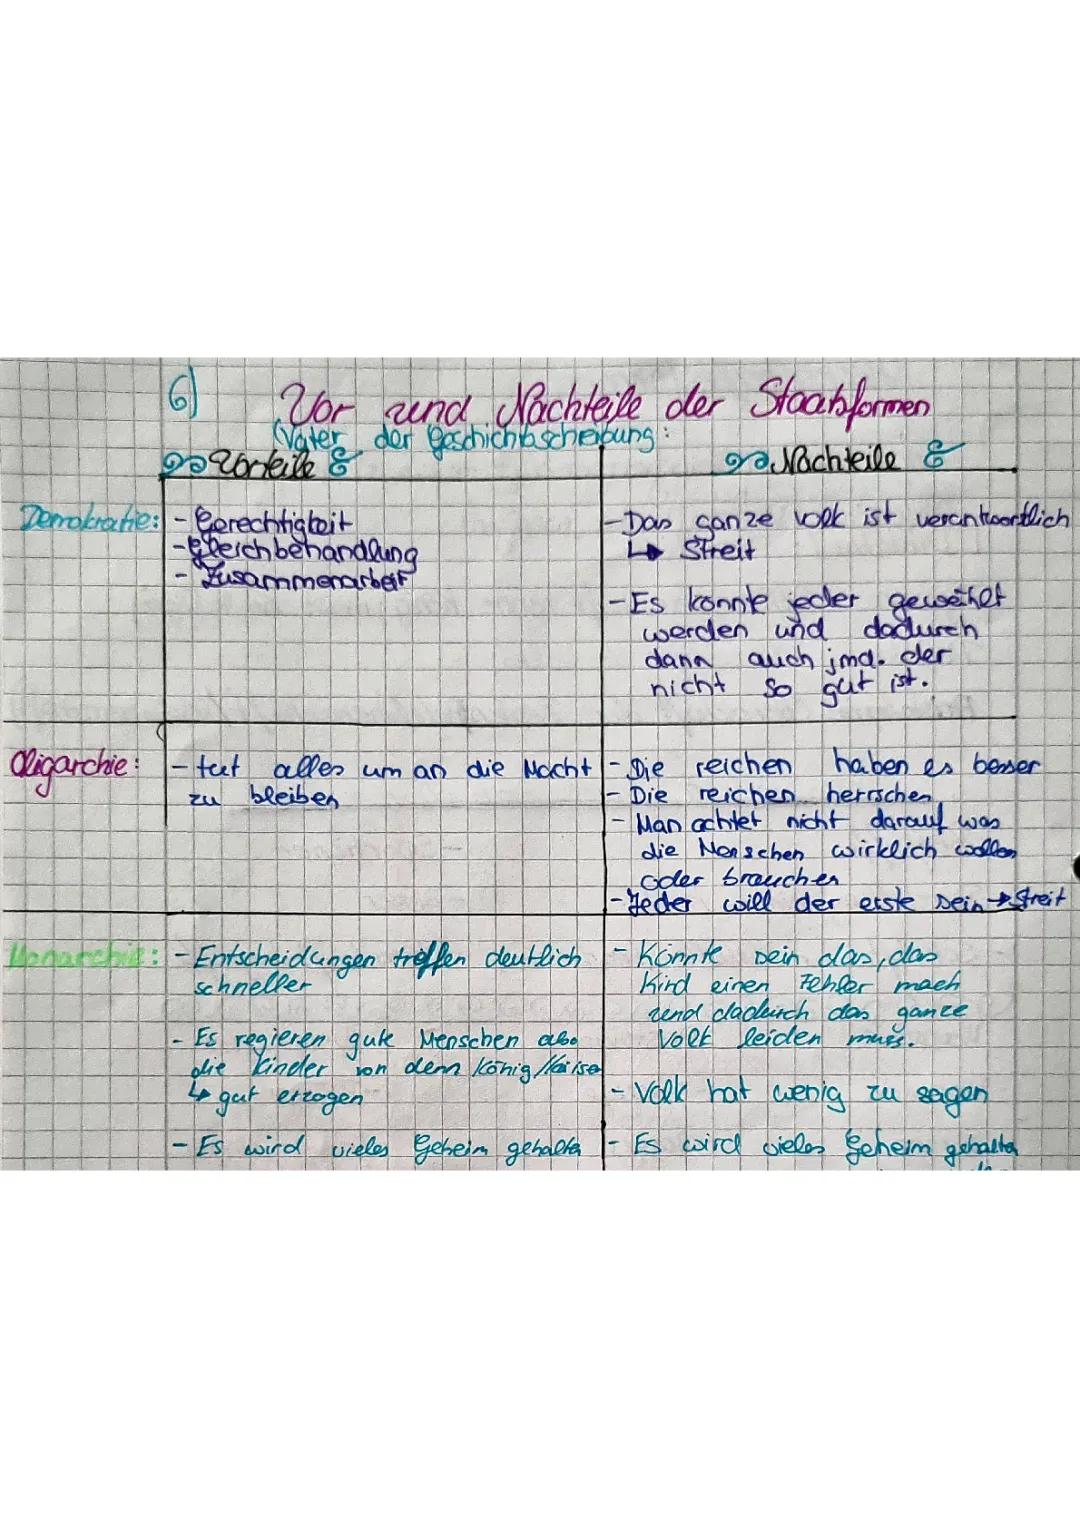 6) Vor und Nachteile der Staatsformen
(Vater der Geschichtsscheibung:
Vorteile
Nachteile
Demokratie:
- Gerechtigkeit
- Gleichbehandlung
- Zusammenarbeit
- Das ganze Volk ist verantwortlich
↳ Streit
- Es könnte jeder gewählt
werden und dadurch
dann auch jmd. der
nicht so gut ist.
Oligarchie:
- tut alles um an die Macht
zu bleiben
- Die reichen haben es besser
- Die reichen herrschen
- Man achtet nicht darauf was
die Menschen wirklich wollen
oder brauchen
- Jeder will der erste sein → Streit
Monarchie:
- Entscheidungen treffen deutlich
schneller
- Es regieren gute Menschen also
die Kinder von denn König/Kaiser
↳ gut erzogen
- Es wird vieles Geheim gehalten
- Könnte sein das, das
Kind einen Fehler mach
und dadurch das ganze
Volk leiden muss.
- Volk hat wenig zu sagen
- Es wird vieles Geheim gehalten